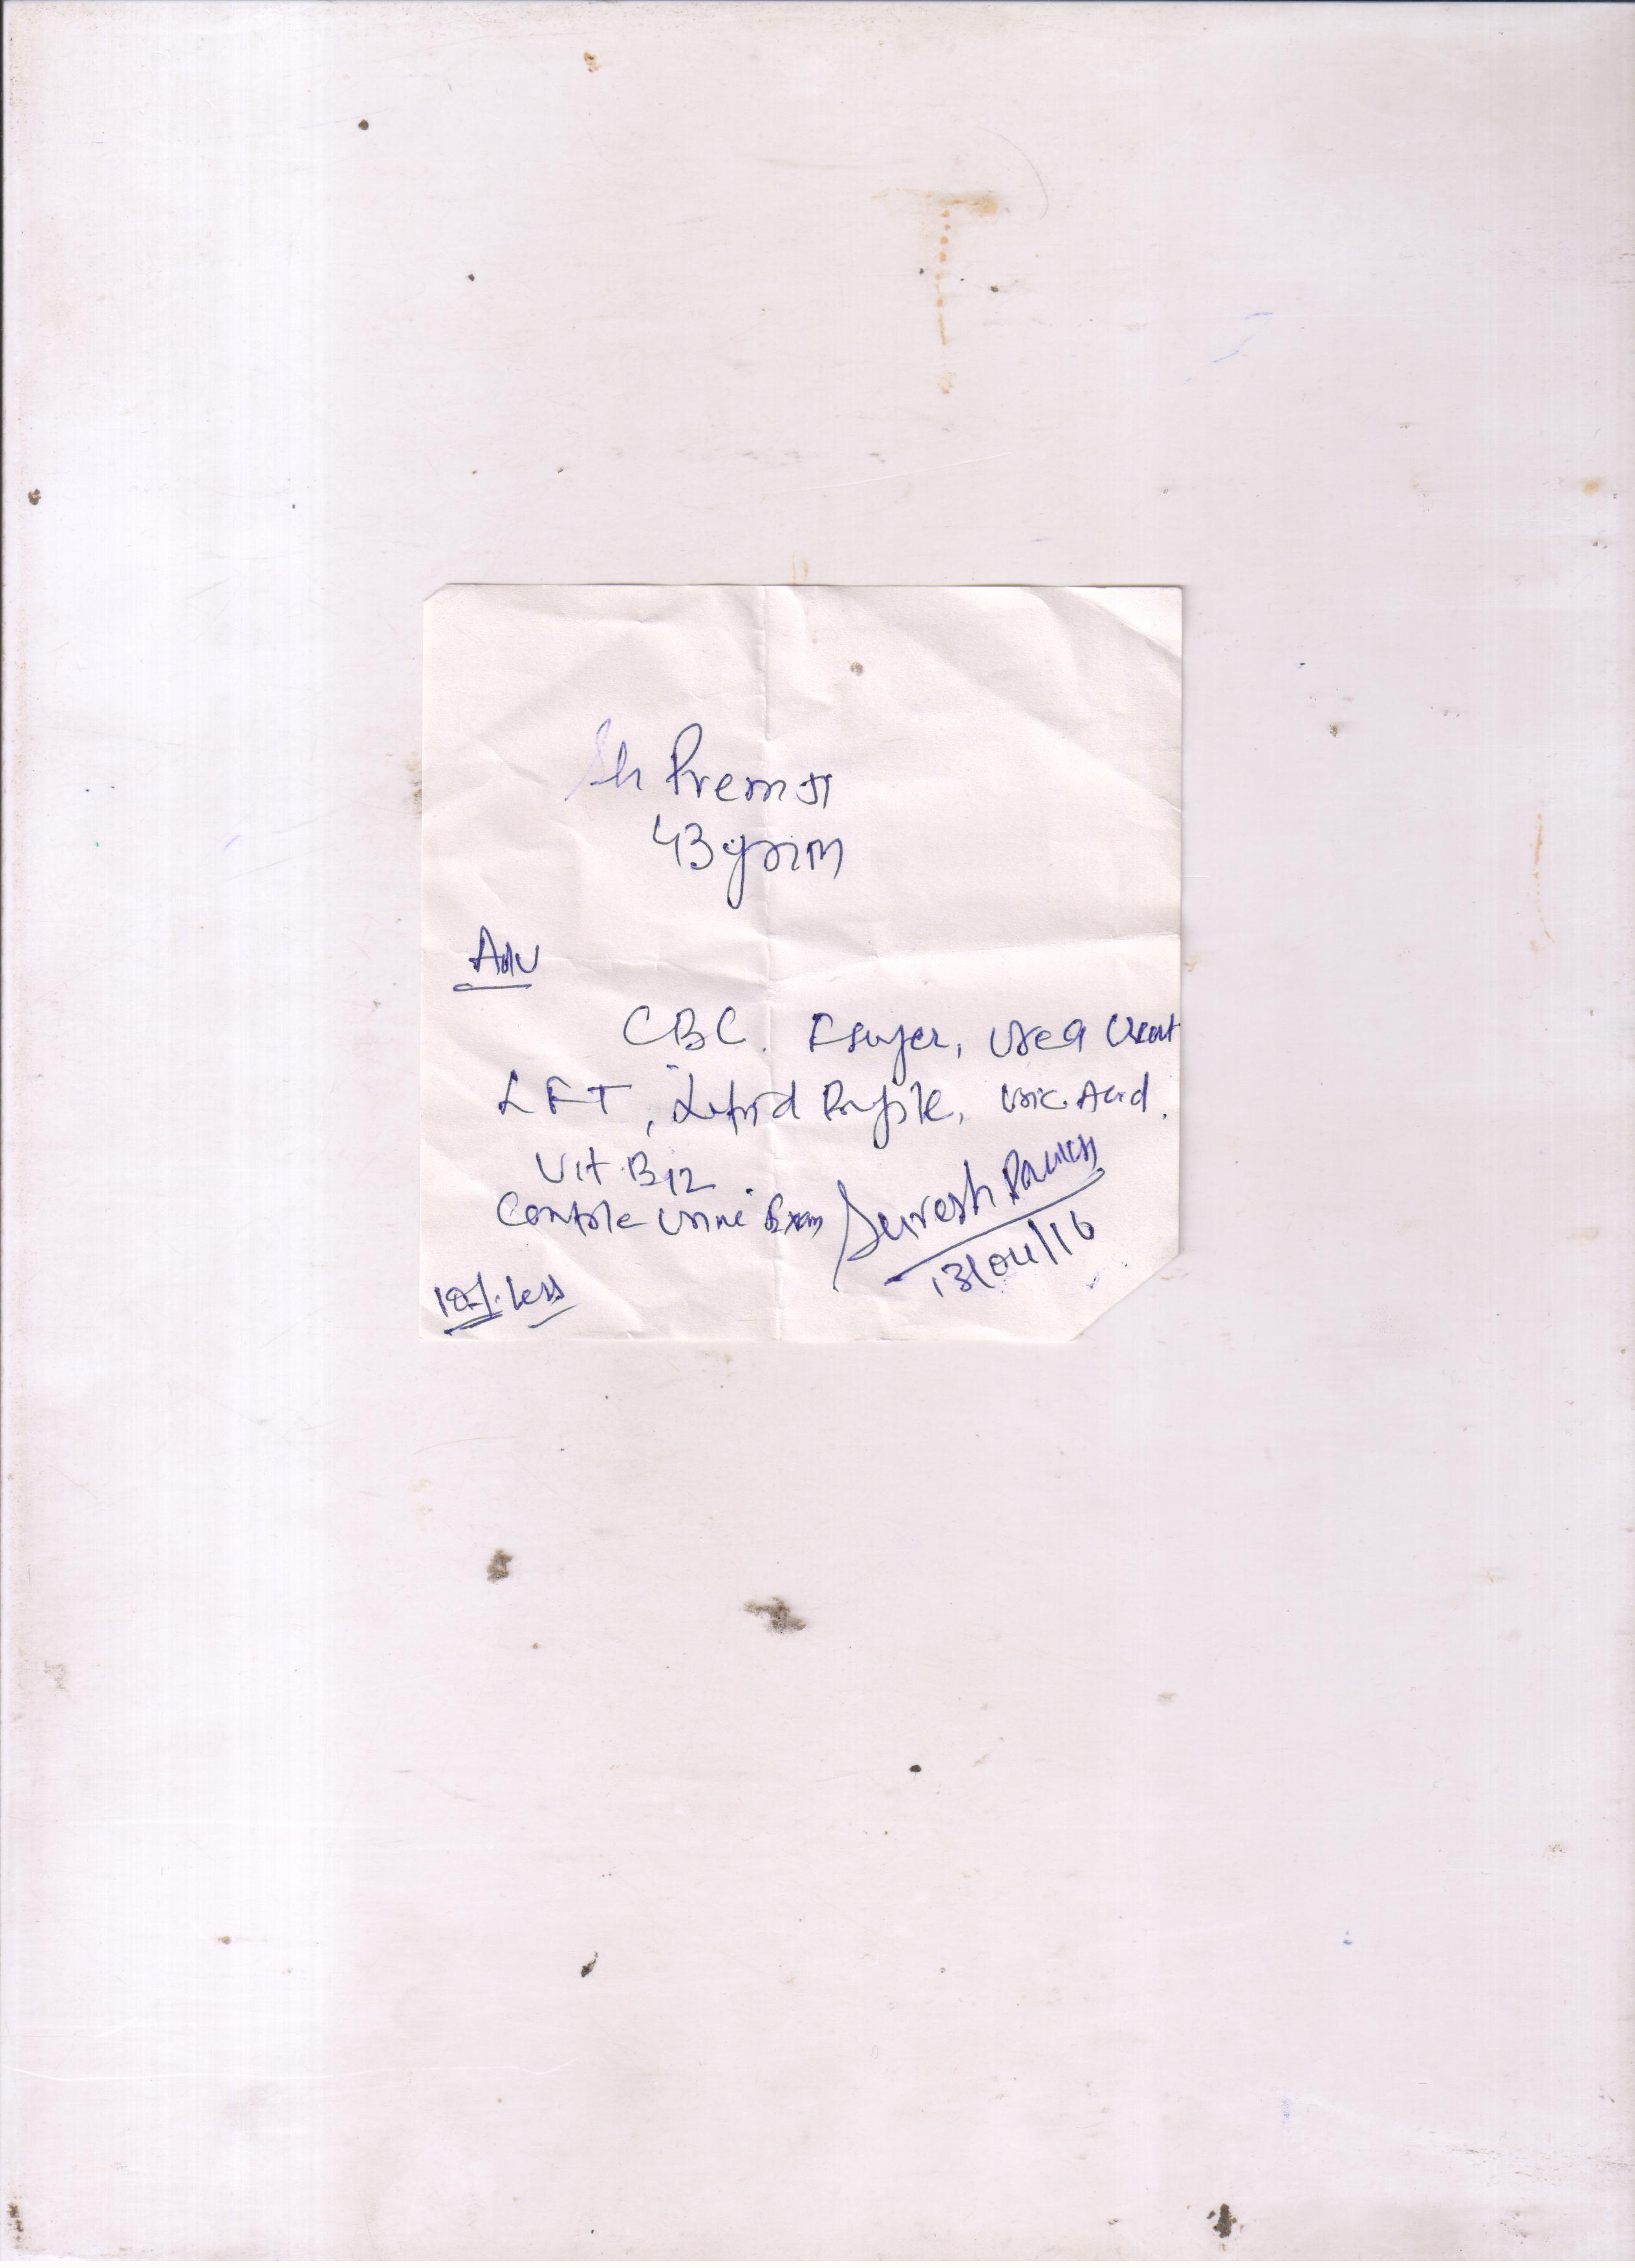 Sh Prem Ji
43 yr/M
Adv
CBC. F Suger, Urea Creat
LFT, Lipid Profile, Uric Acid.
Vit B12.
Comple Urine Exam
Suresh
13/04/16
10%. Less